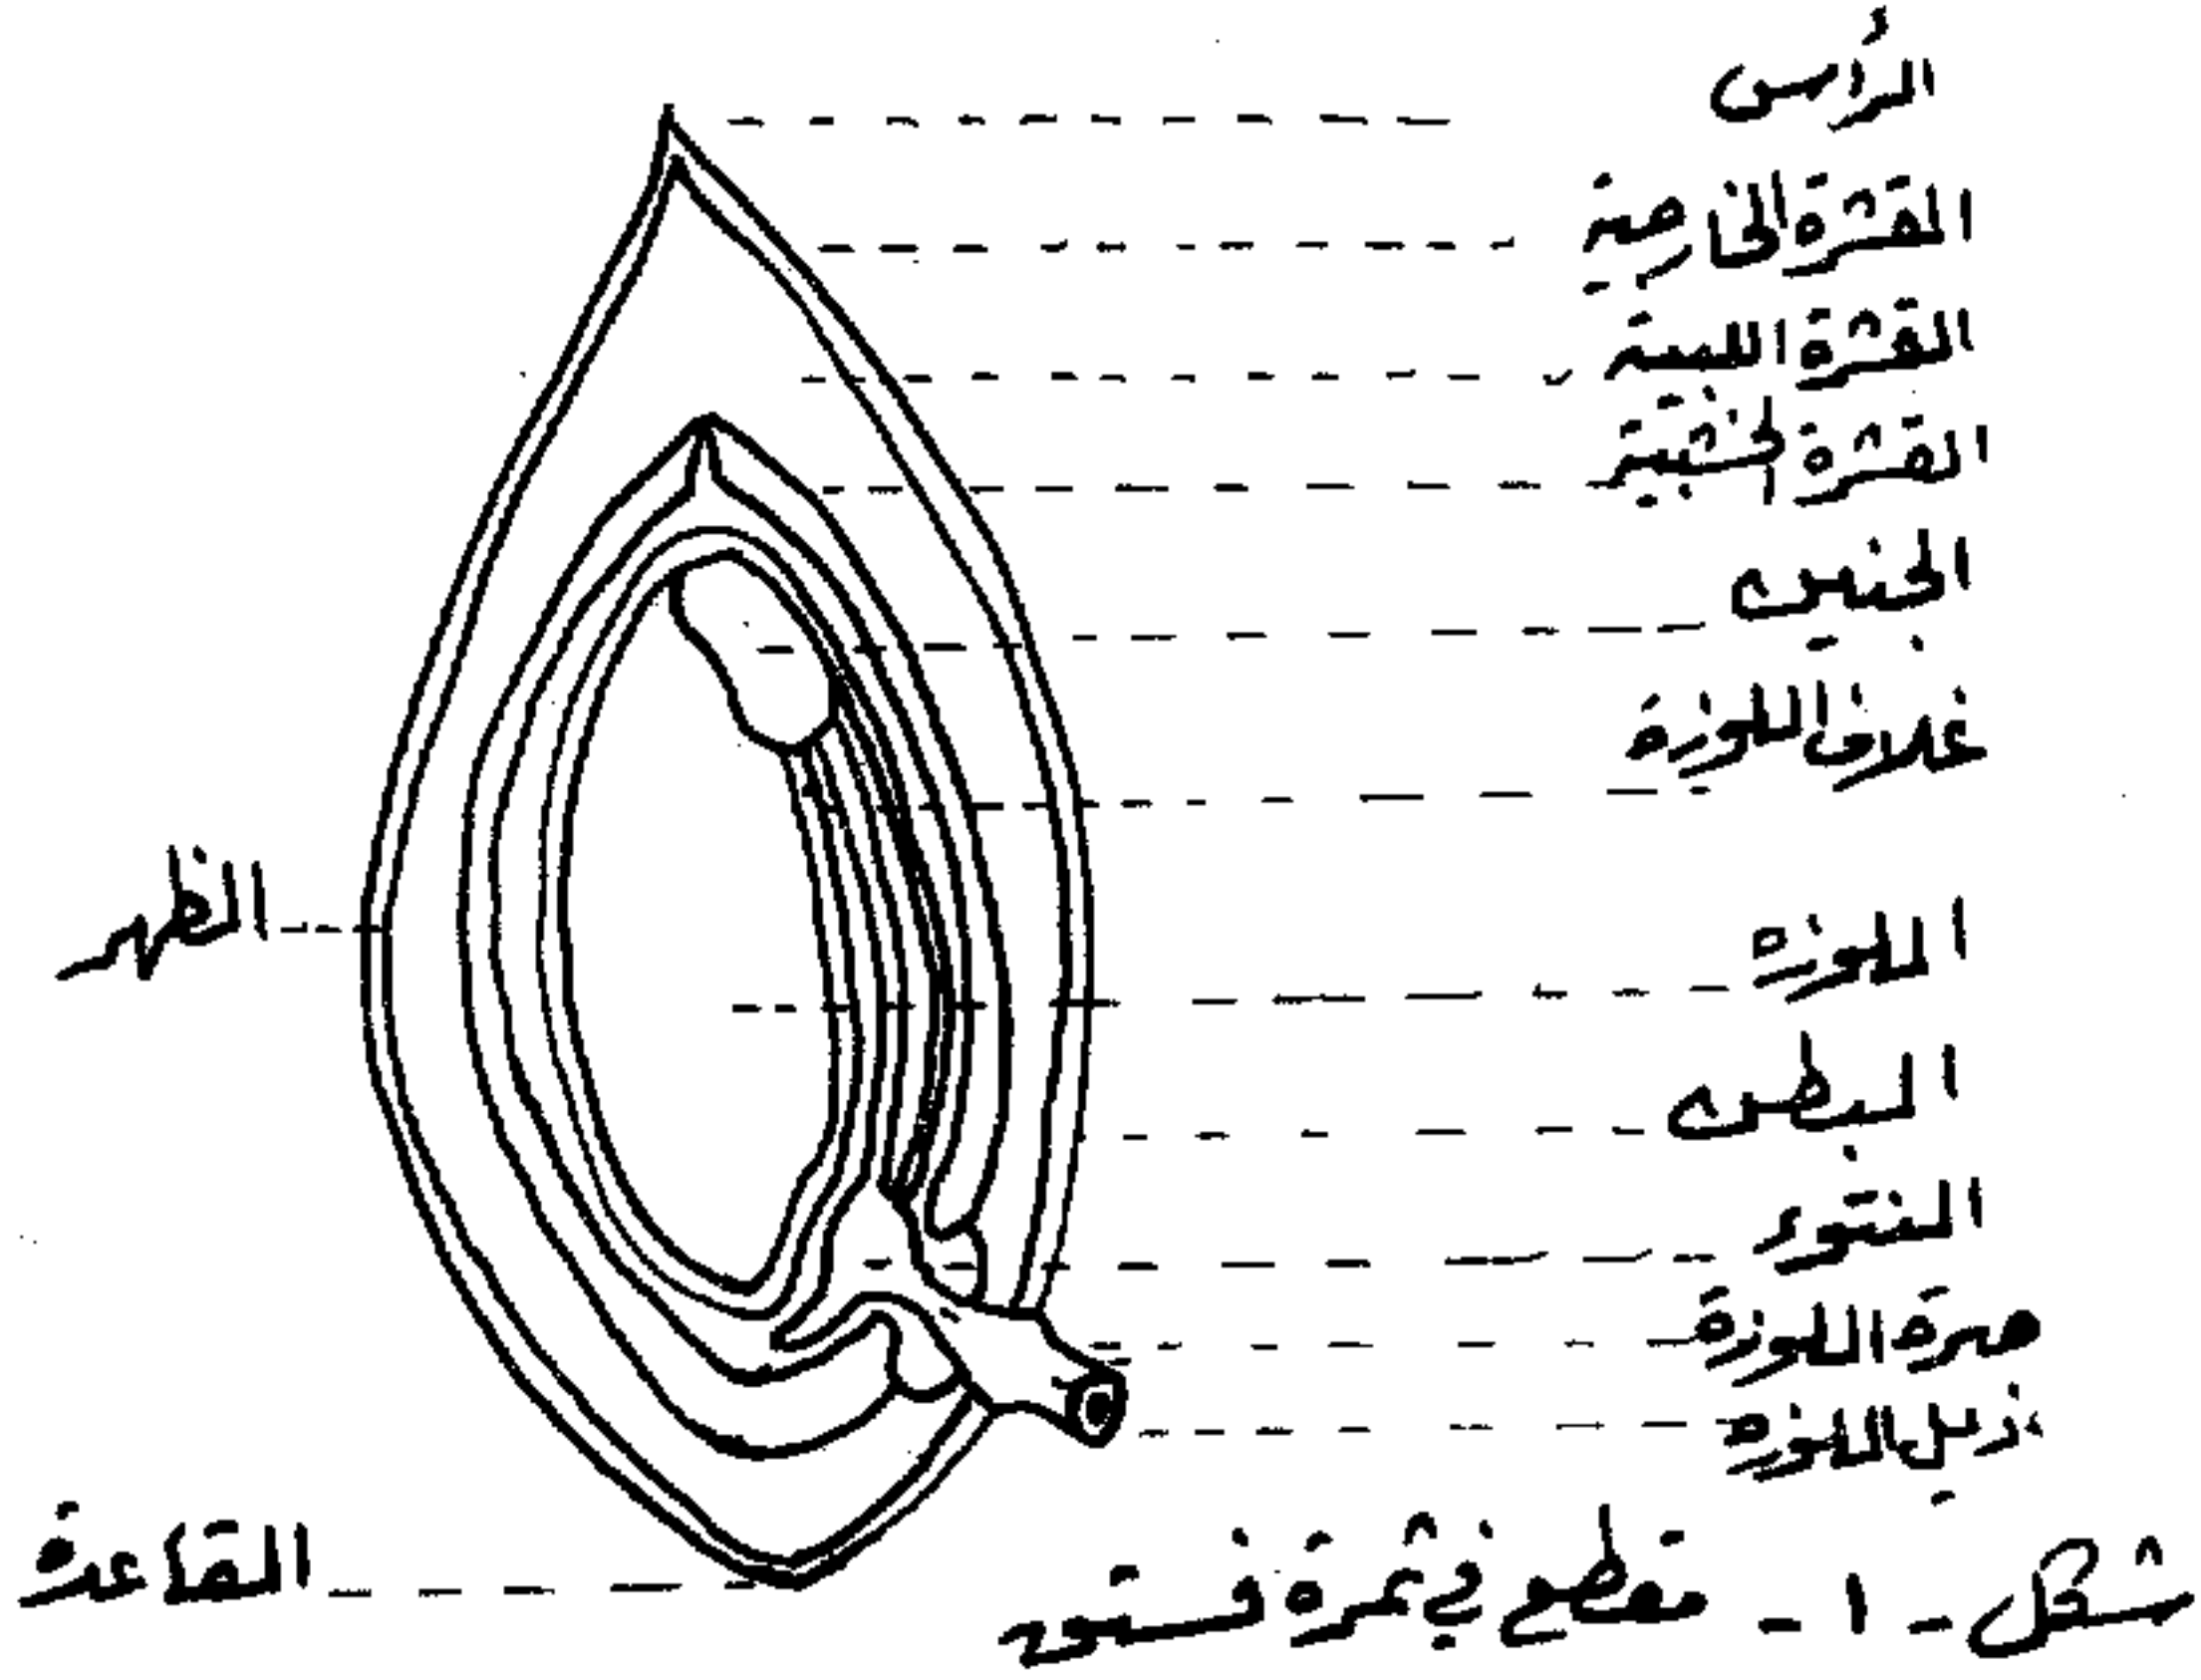 الرأس
القشرة الخارجية
القشرة اللبية
القشرة الخشبية
الجنين
غلاف اللوزة
الظهر
اللوزة
البطن
النتوء
صرة اللوزة
ذيل اللوزة
القاعدة
شكل - ١ - مقطع في ثمرة فستق